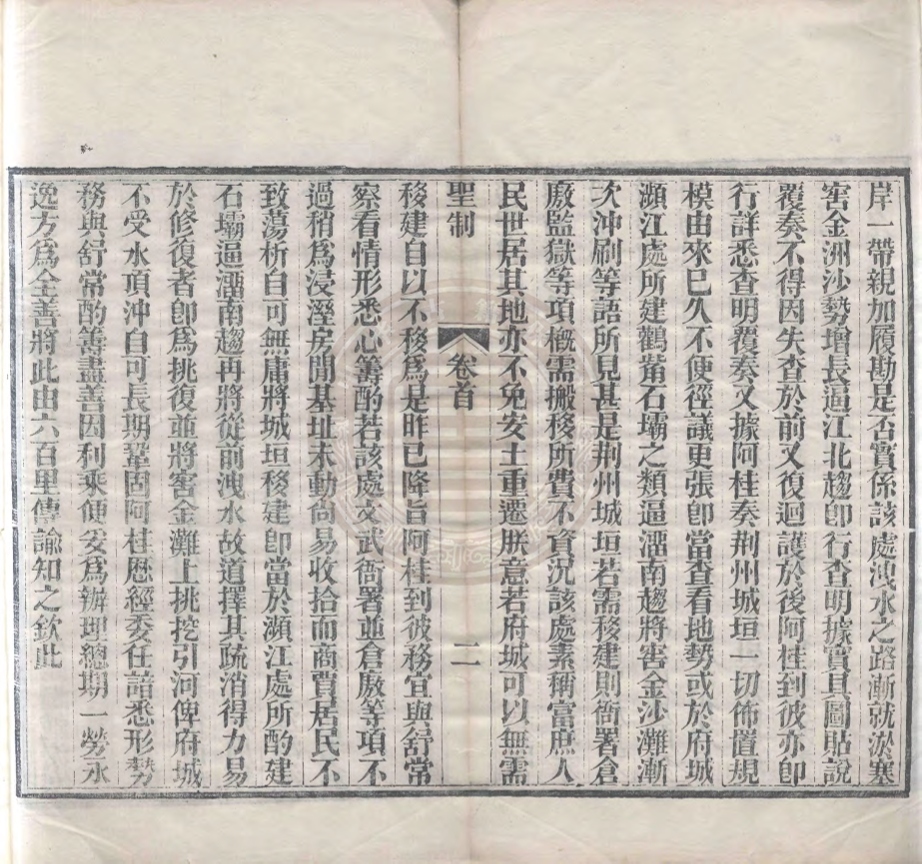 岸一帶親加履勘是否實係該處洩水之路漸就淤塞
窖金洲沙勢增長逼江北趨卽行查明據實具圖貼說
覆奏不得因失查於前又復迴護於後阿桂到彼亦卽
行詳悉查明覆奏又據阿桂奏荆州城垣一切佈置規
模由來已久不便徑議更張卽當查看地勢或於府城
瀕江處所建鸛觜石壩之類逼溜南趨將窖金沙灘漸
次沖刷等語所見甚是荆州城垣若需移建則衙署倉
厫監獄等項槪需搬移所費不資況該處素稱富庶人
民世居其地亦不免安土重遷朕意若府城可以無需
聖制
卷首
二
移建自以不移爲是昨已降旨阿桂到彼務宜與舒常
察看情形悉心籌酌若該處文武衙署並倉厫等項不
過稍爲浸溼房間基址未動尙易收拾而商賈居民不
致蕩析自可無庸將城垣移建卽當於瀕江處所酌建
石壩逼溜南趨再將從前洩水故道擇其疏消得力易
於修復者卽爲挑復並將窖金灘上挑挖引河俾府城
不受水頂沖自可長期鞏固阿桂歷經委任諳悉形勢
務與舒常酌善盡善因利乘便妥爲辦理總期一勞永
逸方爲全善將此由六百里傳諭知之欽此